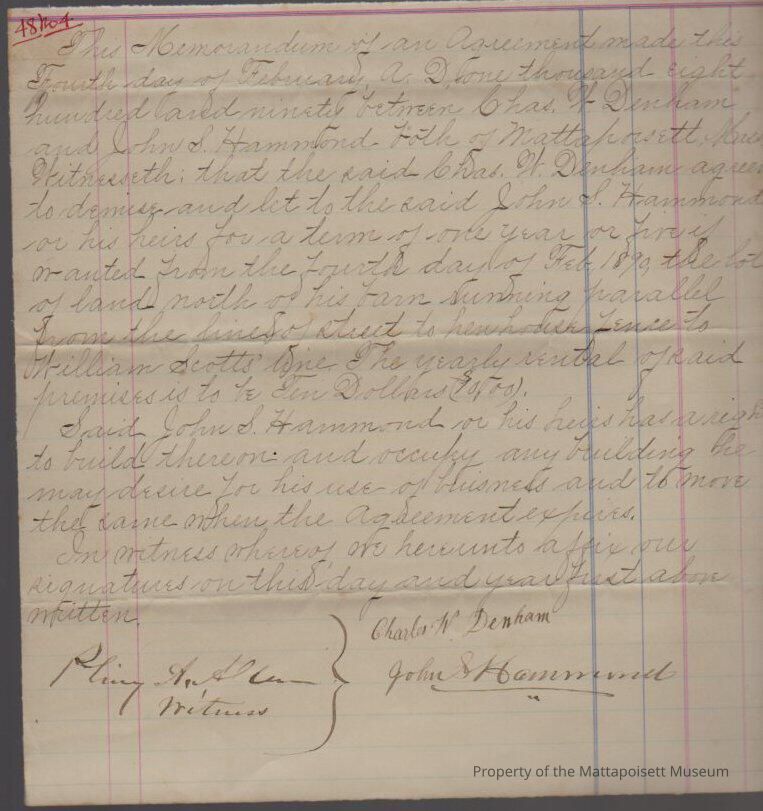 48704
This Memorandum of an Agreement made this
Fourth day of February, A. D. one thousand eight
hundred and ninety between Chas. W. Denham
and John S. Hammond both of Mattapoisett, Mass
Witnesseth: that the said Chas. W. Denham agrees
to demise and let to the said John S. Hammond
or his heirs for a term of one year or five if
wanted from the fourth day of Feb, 1890, the lot
of land north of his barn running parallel
from the line of street to henhouse fence to
William Scotts' line. The yearly rental of said
premises is to be Ten Dollars ($10,00).
Said John S. Hammond or his heirs has a righ
to build thereon and occupy any building he
may desire for his use of buisness and to move
the same when the Agreement expires.
In witness whereof we hereunto affix our
signatures on this day and year first above
written.
Charles W. Denham
Pliny A. Alden
John S Hammond
Witness
Property of the Mattapoisett Museum